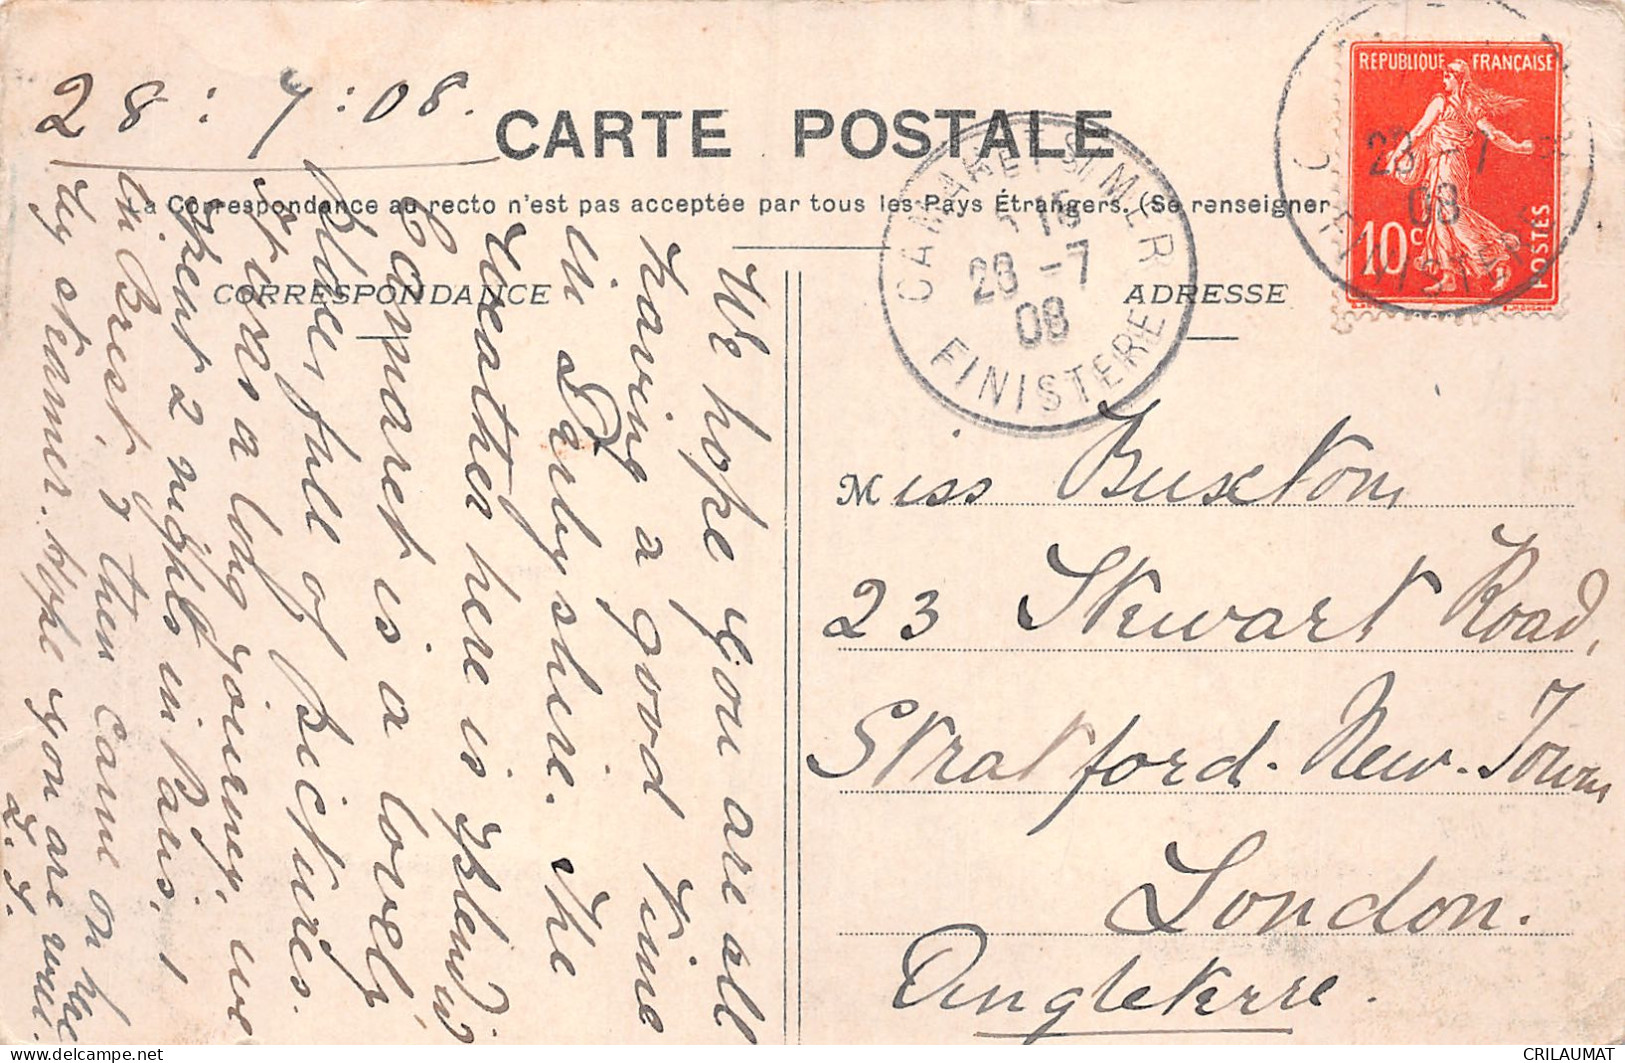 28 : 7 : 08.
CARTE POSTALE
La Correspondance au recto n'est pas acceptée par tous les Pays Étrangers. (Se renseigner
CORRESPONDANCE
ADRESSE
RÉPUBLIQUE FRANÇAISE
10 c
POSTES
28 -7
08
FINISTERE
CAMARET S/ MER
15
28 -7
08
FINISTERE
We hope you are all
having a good time
in Darbyshire. The
weather here is splendid
Camaret is a lovely
place, full of pictures.
It was a long journey, we
spent 2 nights in Paris, 1
in Brest, & then came on here
by steamer. hope you are well.
Miss Buxton
23 Stewart Road,
Stratford. New. Town
London.
Angleterre.
CRILAUMAT